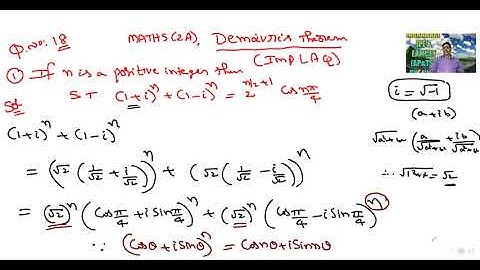 Q.no: 18 MATHS(2A), Demoivre's Theorem
(Imp LAQ)
① If n is a positive integer then
Sol S.T (1+i)^n + (1-i)^n = 2^(n/2+1) cos nπ/4
i = √-1
(a+ib)
(1+i)^n + (1-i)^n
= (√2 (1/√2 + i/√2))^n + (√2 (1/√2 - i/√2))^n
∴ √1²+1² = √2
= (√2)^n (cos π/4 + i sin π/4)^n + (√2)^n (cos π/4 - i sin π/4)^n
∵ (cosθ + i sinθ)^n = cos nθ + i sin nθ